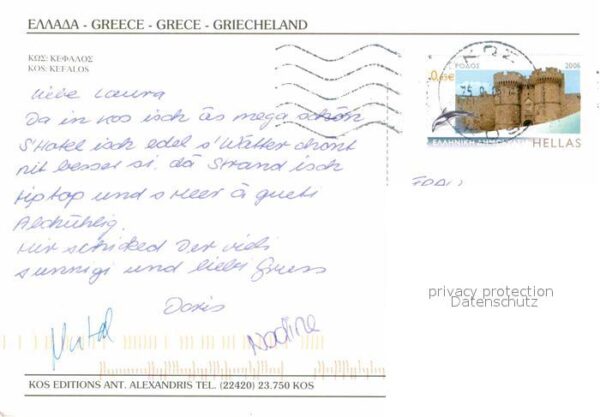 ΕΛΛΑΔΑ - GREECE - GRECE - GRIECHELAND
ΚΩΣ: ΚΕΦΑΛΟΣ
KOS: KEFALOS
Liebe Laura
Da in Kos isch äs mega schön
S'Hotel isch edel s'Wätter chönt
nit besser si. dä Strand isch
tiptop und s Meer ä gueti
Abchühlig.
Mir schicked Der vieli
sunnigi und liebi Gruess
Doris
Nadine
ΡΟΔΟΣ 2006
0,65€
HELLAS
privacy protection
Datenschutz
KOS EDITIONS ANT. ALEXANDRIS TEL. (22420) 23.750 KOS